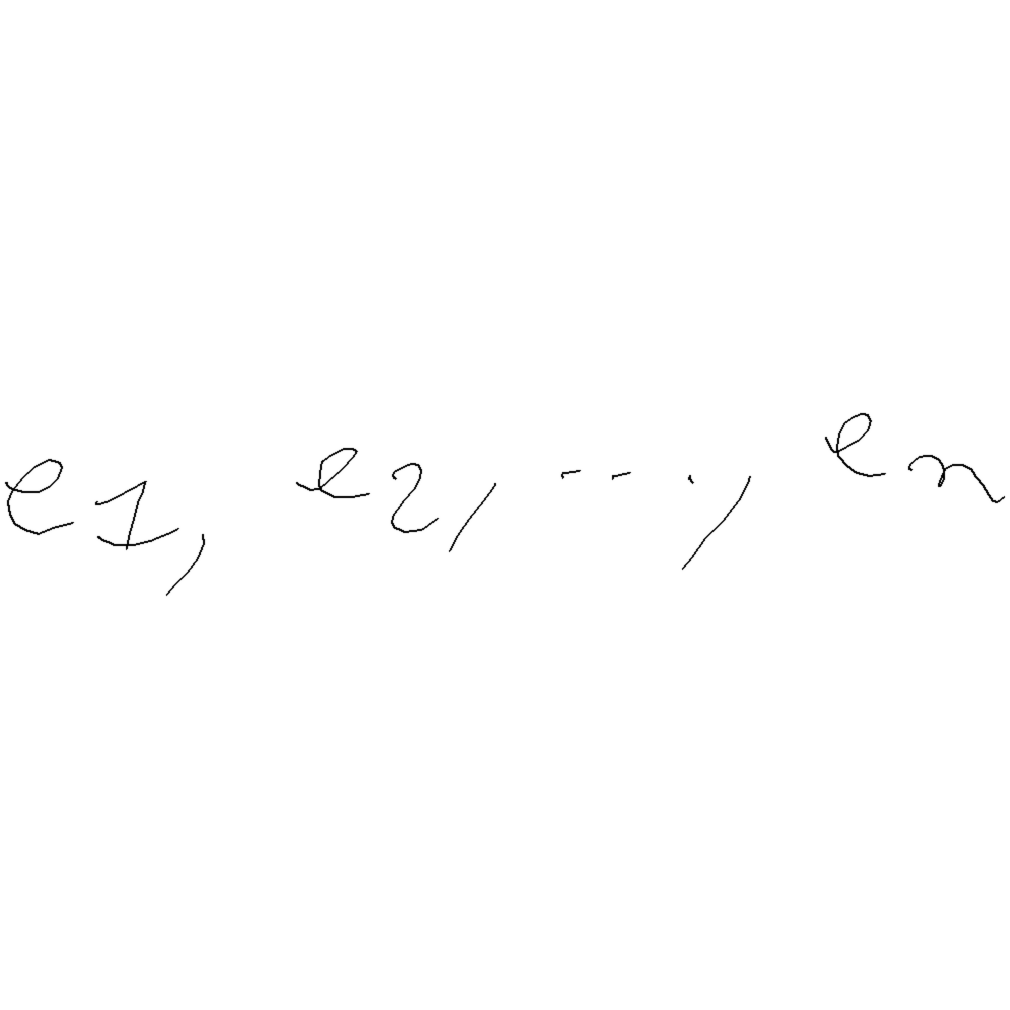 e1, e2, ..., en